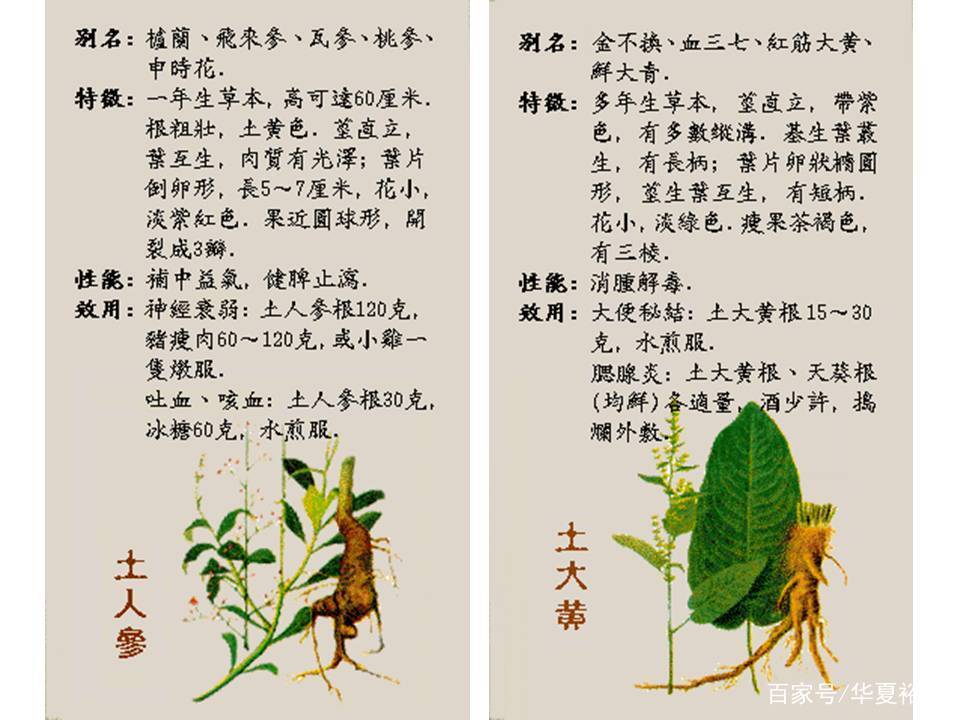 別名：櫨蘭、飛來參、瓦參、桃參、
申時花．
特徵：一年生草本，高可達60厘米．
根粗壯，土黃色．莖直立，
葉互生，肉質有光澤；葉片
倒卵形，長5～7厘米，花小，
淡紫紅色．果近圓球形，開
裂成3瓣．
性能：補中益氣，健脾止瀉．
效用：神經衰弱：土人參根120克，
豬瘦肉60～120克，或小雞一
隻燉服．
吐血、咳血：土人參根30克，
冰糖60克，水煎服．
土人參
別名：金不換、血三七、紅筋大黃、
鮮大青．
特徵：多年生草本，莖直立，帶紫
色，有多數縱溝．基生葉叢
生，有長柄；葉片卵狀橢圓
形，莖生葉互生，有短柄．
花小，淡綠色．瘦果茶褐色，
有三棱．
性能：消腫解毒．
效用：大便秘結：土大黃根15～30
克，水煎服．
腮腺炎：土大黃根、天葵根
(均鮮)各適量，酒少許，搗
爛外敷．
土大黃
百家号/华夏裕